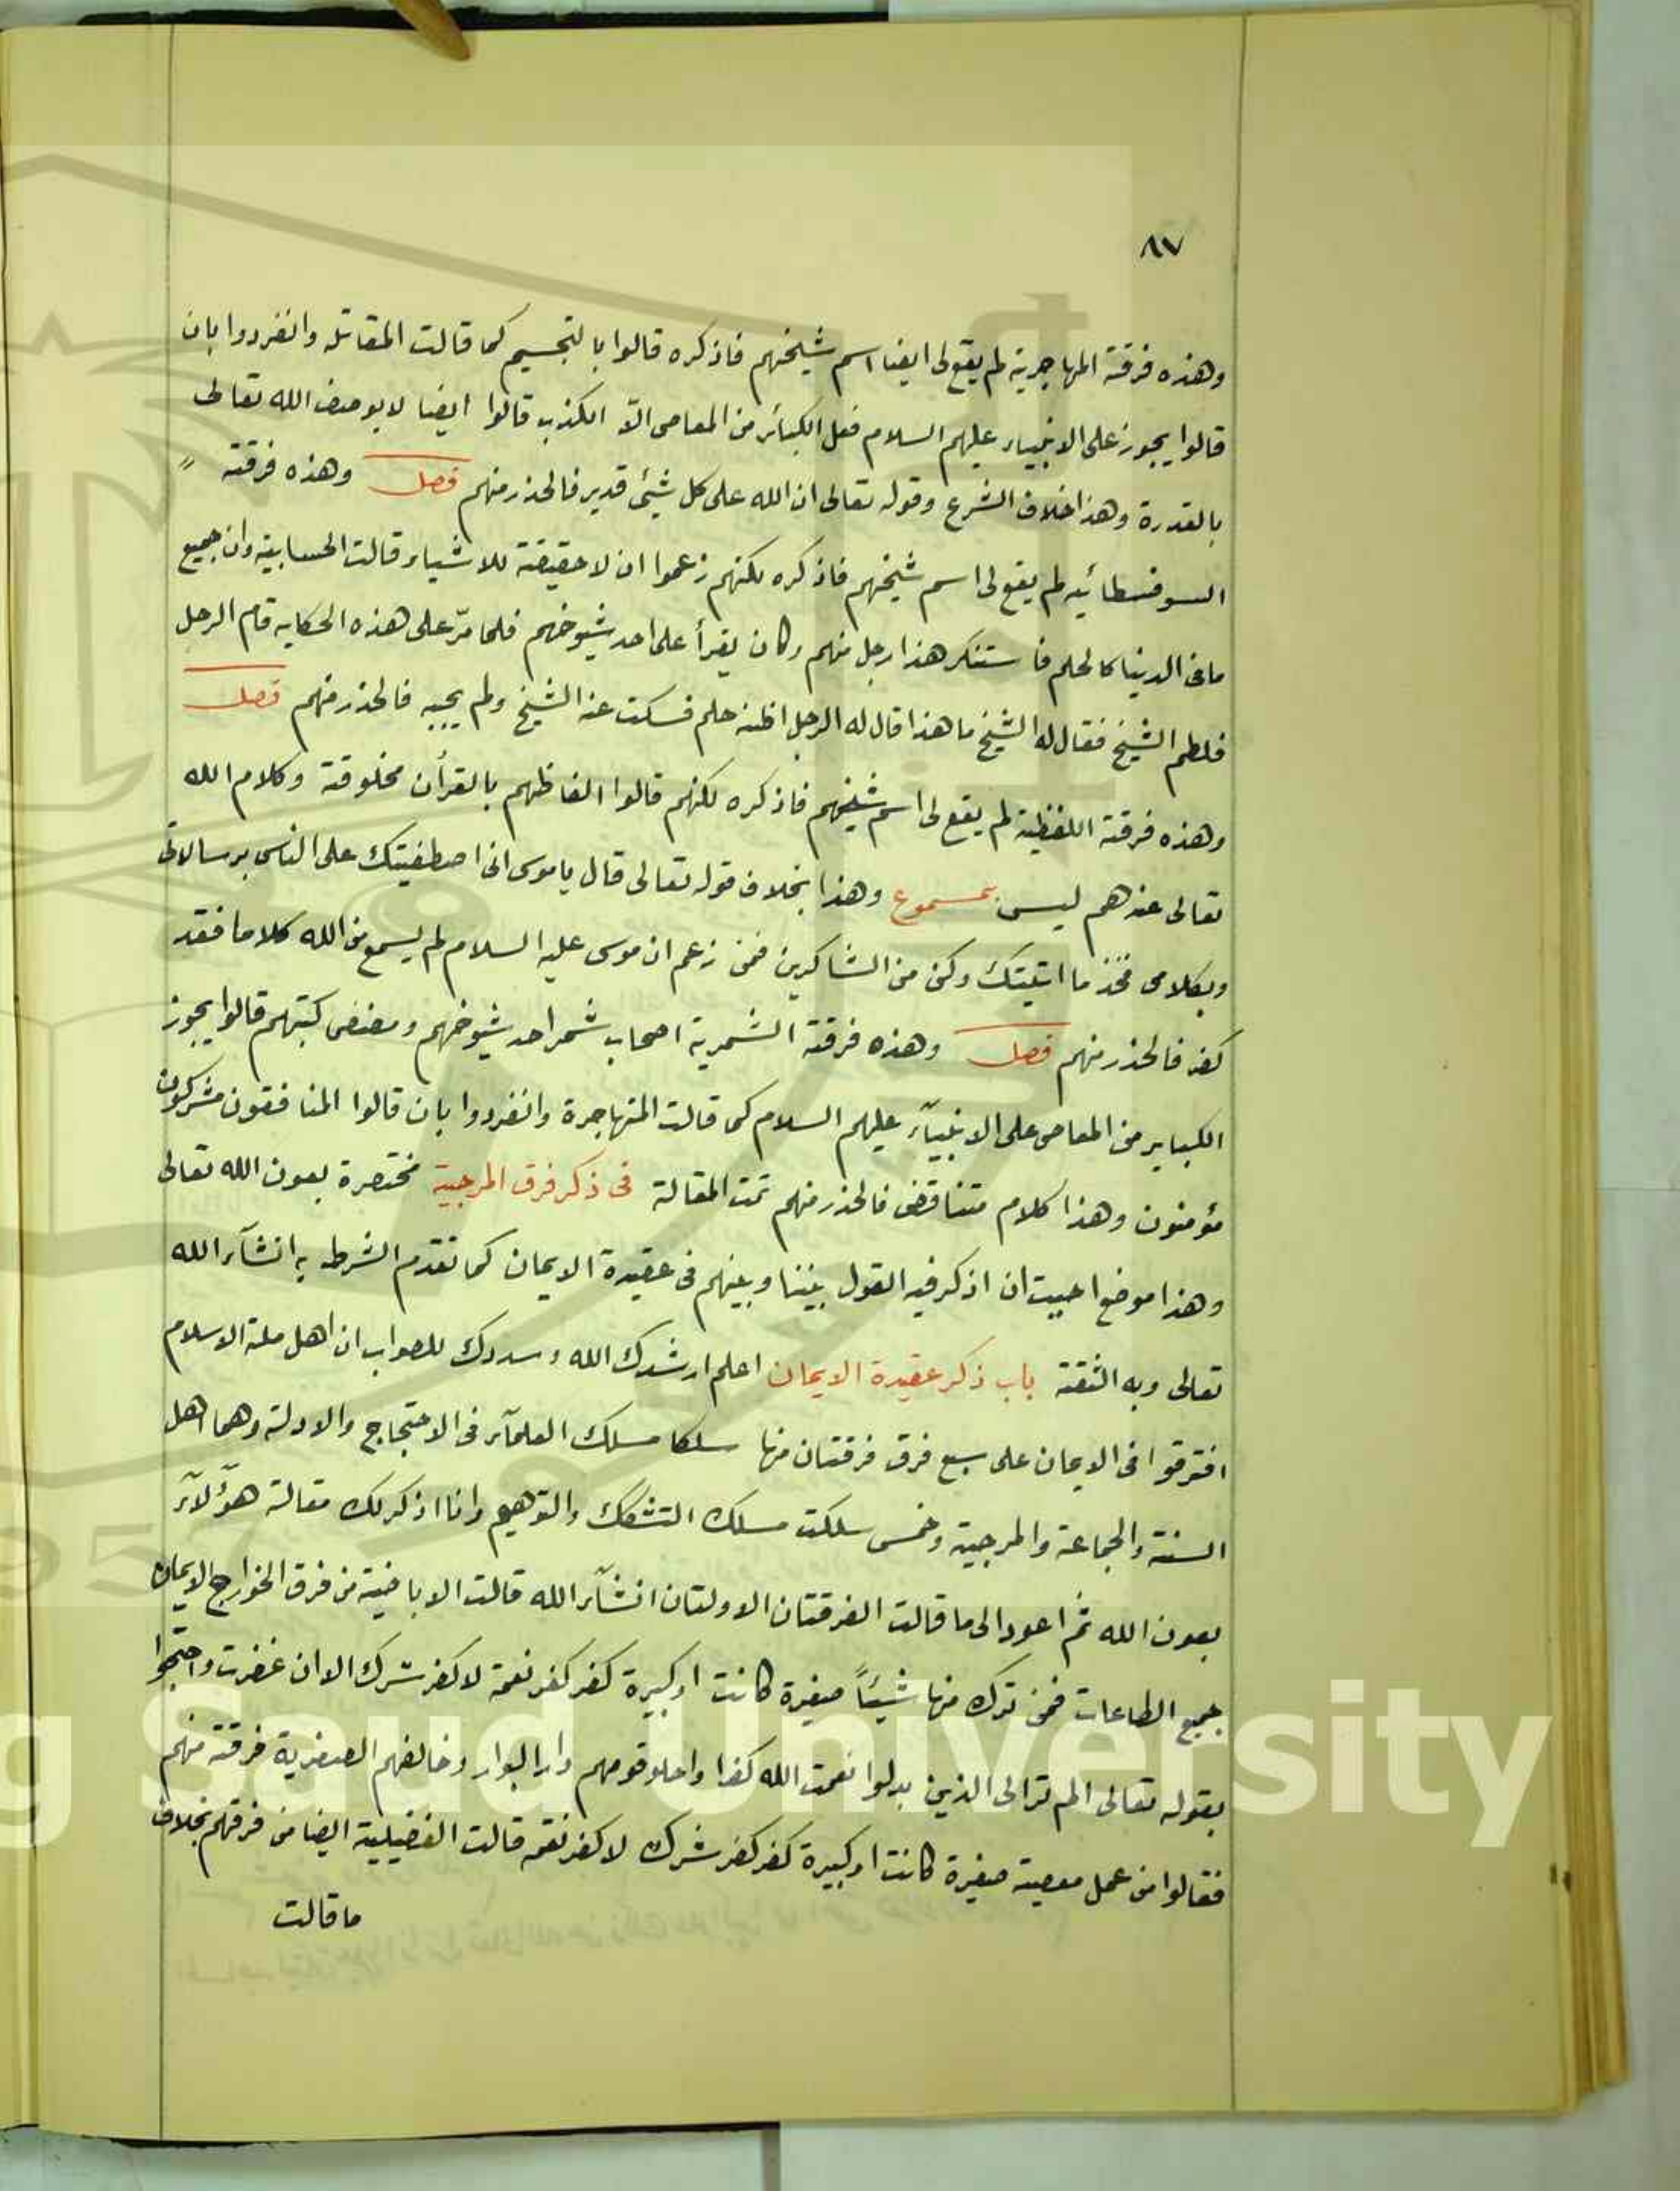 ٨٧
وهذه فرقة المهاجرية لم يقع لى ايضا اسم شيخهم فاذكره قالوا بالتجسيم كما قالت المقاتله وانفردوا بان
قالوا يجوز على الانبياء عليهم السلام فعل الكبائر من المعاصى الّا الكذب قالوا ايضا لا يوصف الله تعالى
بالقدرة وهذا خلاف الشرع وقوله تعالى ان الله على كل شيئ قدير فالحذر منهم فصل وهذه فرقة
السوفسطائيه لم يقع لى اسم شيخهم فاذكره لكنهم زعموا ان لا حقيقة للاشياء وقالت الحسابية وان جميع
ما فى الدينا كالحلم فاستنكر هذا رجل منهم وكان يقرأ على احد شيوخهم فلما مرّ على هذه الحكايه قام الرجل
فلطم الشيخ فقال له الشيخ ما هذا قال له الرجل اظنه حلم فسكت عنه الشيخ ولم يجيبه فالحذر منهم فصل
وهذه فرقة اللفظية لم يقع لى اسم شيخهم فاذكره لكنهم قالوا الفاظهم بالقرأن مخلوقة وكلام الله
تعالى عندهم ليس بمسموع وهذا بخلاف قوله تعالى قال ياموسى انى اصطفيتك على الناس برسالاتى
وبكلامى فخذ ما اتيتك وكن من الشاكرين فمن زعم ان موسى عليه السلام لم يسمع من الله كلاما فقد
كفر فالحذر منهم فصل وهذه فرقة الشمرية اصحاب شمر احد شيوخهم ومصنف كتبهم قالوا يجوز
الكباير من المعاصى على الانبيآء عليهم السلام كما قالت المتهاجرة وانفردوا بان قالوا المنافقون مشركون
مؤمنون وهذا كلام متناقض فالحذر منهم تمت المقالة فى ذكر فرق المرجية مختصرة بعون الله تعالى
وهذا موضع احببت ان اذكر فيه القول بيننا وبينهم فى عقيدة الايمان كما تقدم الشرط به انشآء الله
تعالى وبه الثقة باب ذكر عقيدة الايمان اعلم ارشدك الله وسددك للصواب ان اهل ملة الاسلام
افترقوا فى الايمان على سبع فرق فرقتان منها سلكا مسلك العلمآء فى الاحتجاج والادلة وهما اهل
السنة والجماعة والمرجية وخمس سلكت مسلك التشكك والتوهيم وانا اذكر لك مقالة هؤلآء
بعون الله ثم اعود الى ما قالت الفرقتان الاولتان انشآء الله قالت الاباضية من فرق الخوارج الايمان
جميع الطاعات فمن ترك منها شيئاً صغيرة كانت او كبيرة كفر كفر نعمة لا كفر شرك الا ان غفرت واحتجوا
بقوله تعالى الم ترالى الذين بدلوا نعمت الله كفرا واحلو قومهم دار البوار وخالفهم الصفرية فرقة منهم
فقالوا من عمل معصية صغيرة كانت او كبيرة كفر كفر شرك لا كفر نعمه قالت الفضيلية ايضا من فرقهم بخلاف
ما قالت